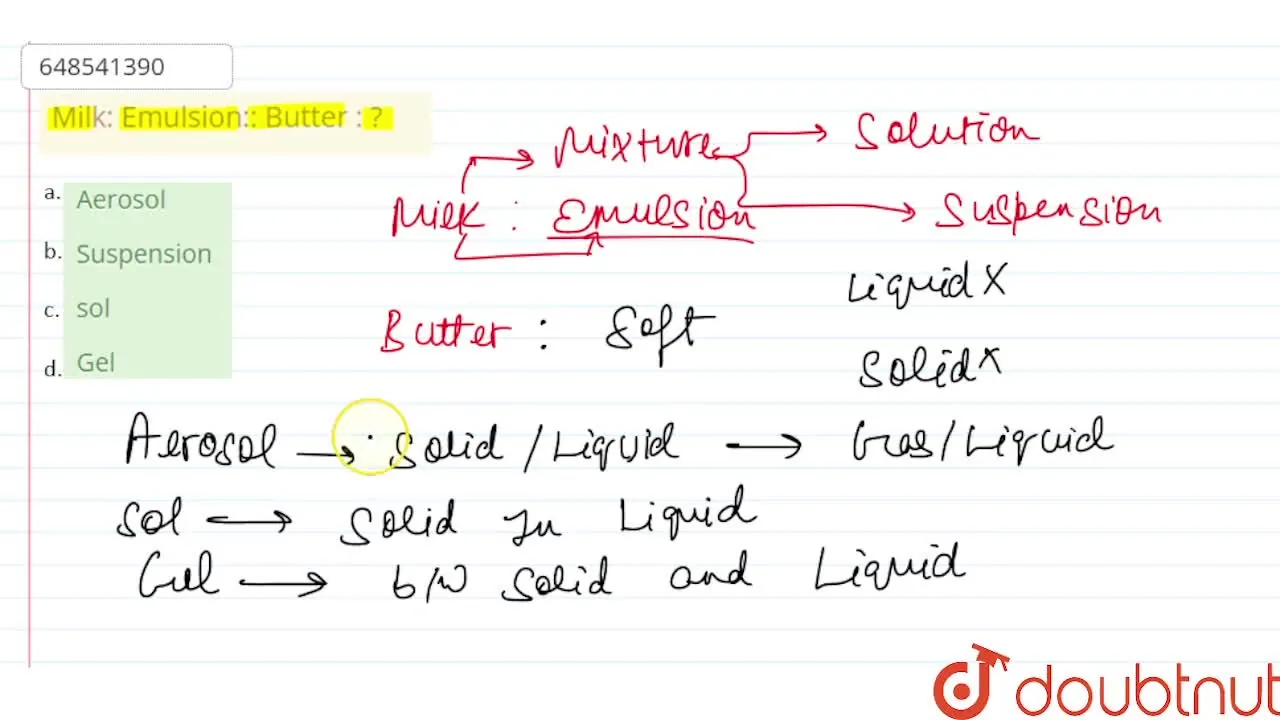 648541390
Milk: Emulsion:: Butter : ?
a. Aerosol
b. Suspension
c. sol
d. Gel
Mixture → Solution
Milk : Emulsion → Suspension
Liquid X
Butter : Soft
Solid X
Aerosol → Solid / Liquid → Gas/Liquid
Sol → Solid In Liquid
Gel → b/w Solid and Liquid
doubtnut